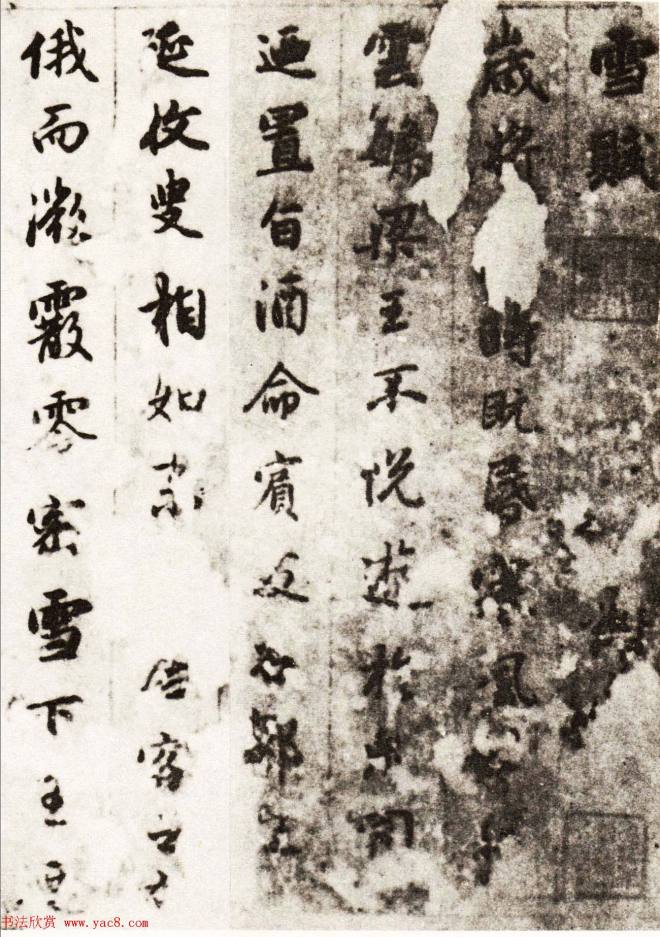 雪賦
歲將時既昏寒風
雲繁梁王不悅遊於園
迺置旨酒命賓友召鄒生
延枚叟相如末居客之右
俄而微霰零密雪下王迺
书法欣赏 www.yac8.com